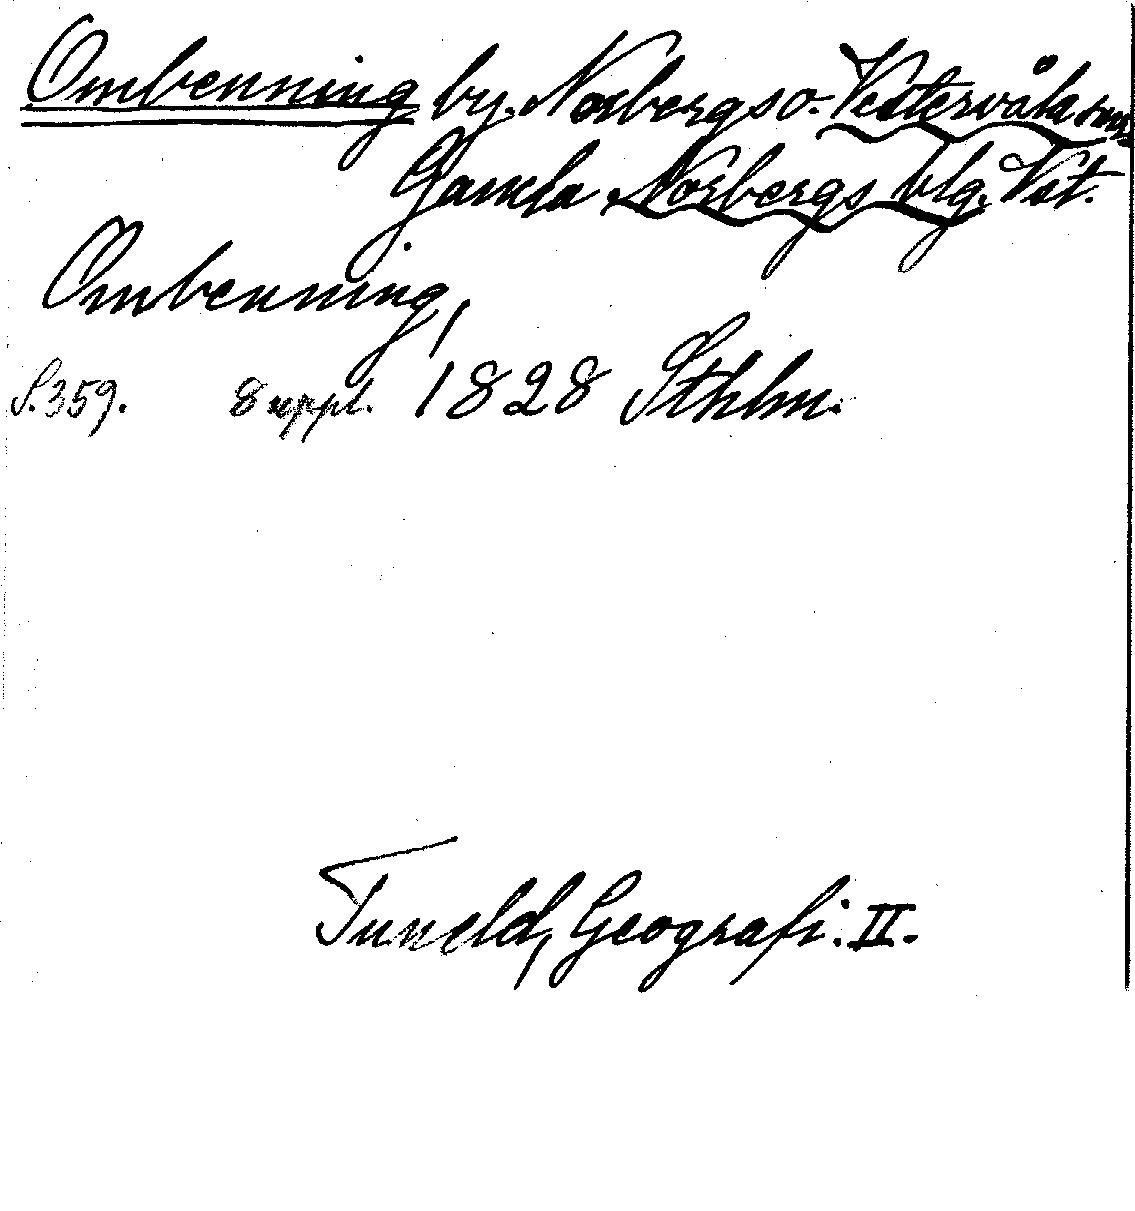 Ombenning by. Norbergs o. Vestervåla snr
Gamla Norbergs blg. Vst.
Ombenning,
S. 359. 8 uppl. 1828 Sthlm.
Tuneld, Geografi. II.